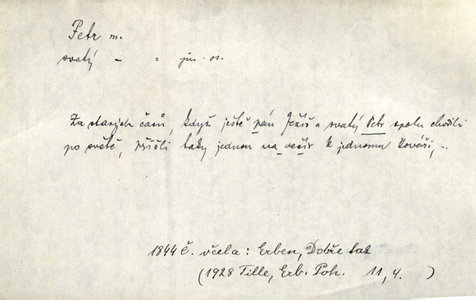 Petr m.
svatý – " jm. os.
Za starých časů, když ještě pán Ježíš a svatý Petr spolu chodili
po světě, přišli taky jednou na večír k jednomu kováři, ..
1844 Č. včela: Erben, Dobře tak
(1928 Tille, Erb. Poh. 11, 4. )